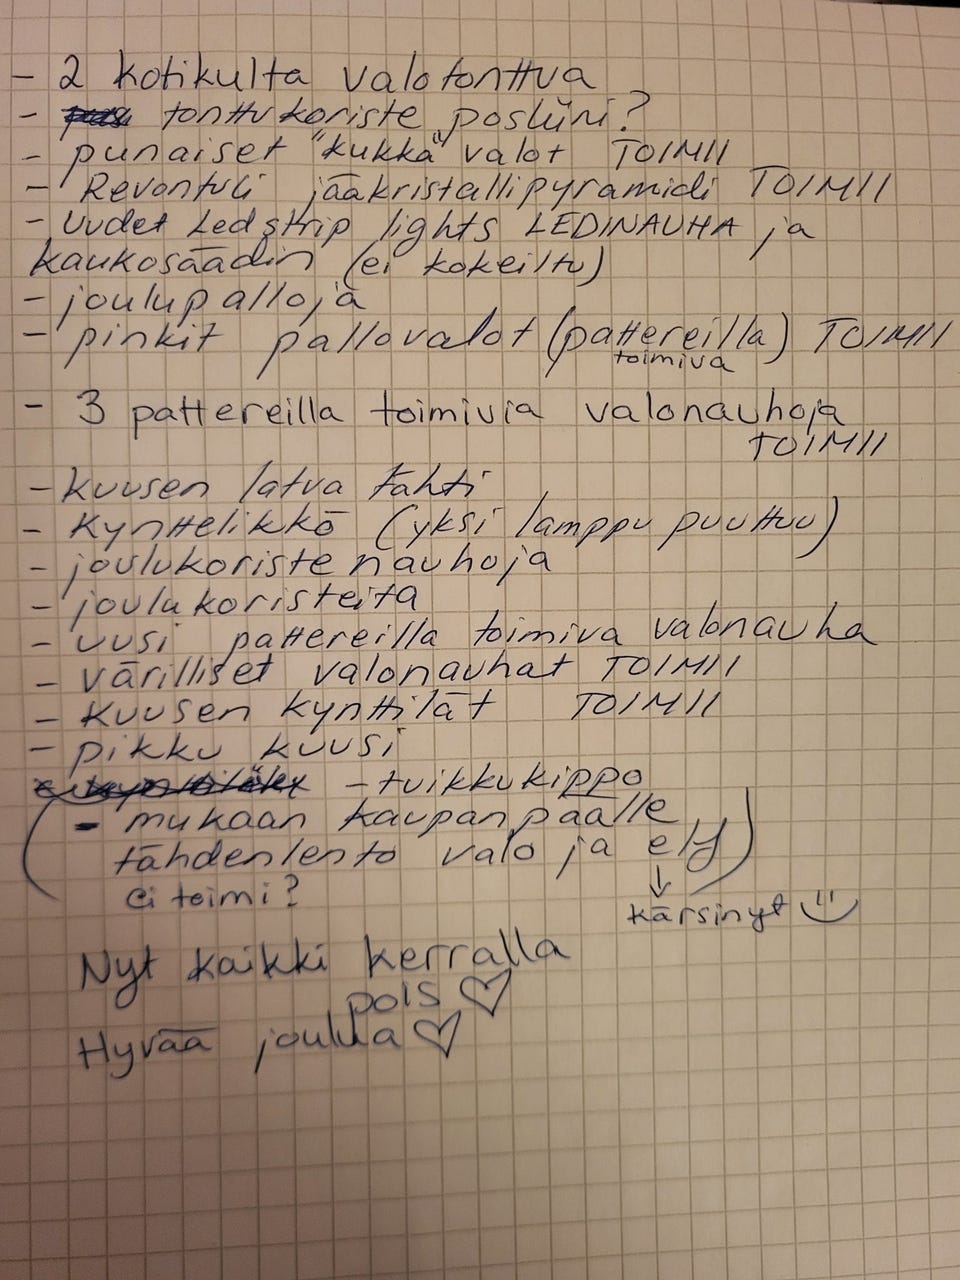 - 2 kotikulta valotonttua
- tonttukoriste posliini?
- punaiset "kukka" valot TOIMII
- Revontuli jääkristallipyramidi TOIMII
- Uudet Led strip lights LEDINAUHA ja
kaukosäädin (ei kokeiltu)
- joulupalloja
- pinkit pallovalot (pattereilla) TOIMII
toimiva
- 3 pattereilla toimivia valonauhoja
TOIMII
- kuusen latva tähti
- Kynttelikkö (yksi lamppu puuttuu)
- joulukoriste nauhoja
- joulukoristeita
- uusi pattereilla toimiva valonauha
- värilliset valonauhat TOIMII
- kuusen kynttilät TOIMII
- pikku kuusi
- tuikkukippo
(- mukaan kaupanpäälle
tähdenlento valo ja elf)
ei toimi? ↓
kärsinyt
Nyt kaikki kerralla
pois ♡
Hyvää joulua ♡